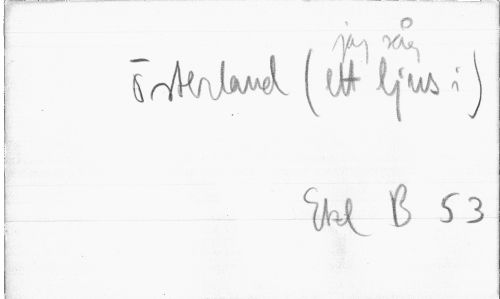 jag såg
Österland (ett ljus i)
Etzl B 53